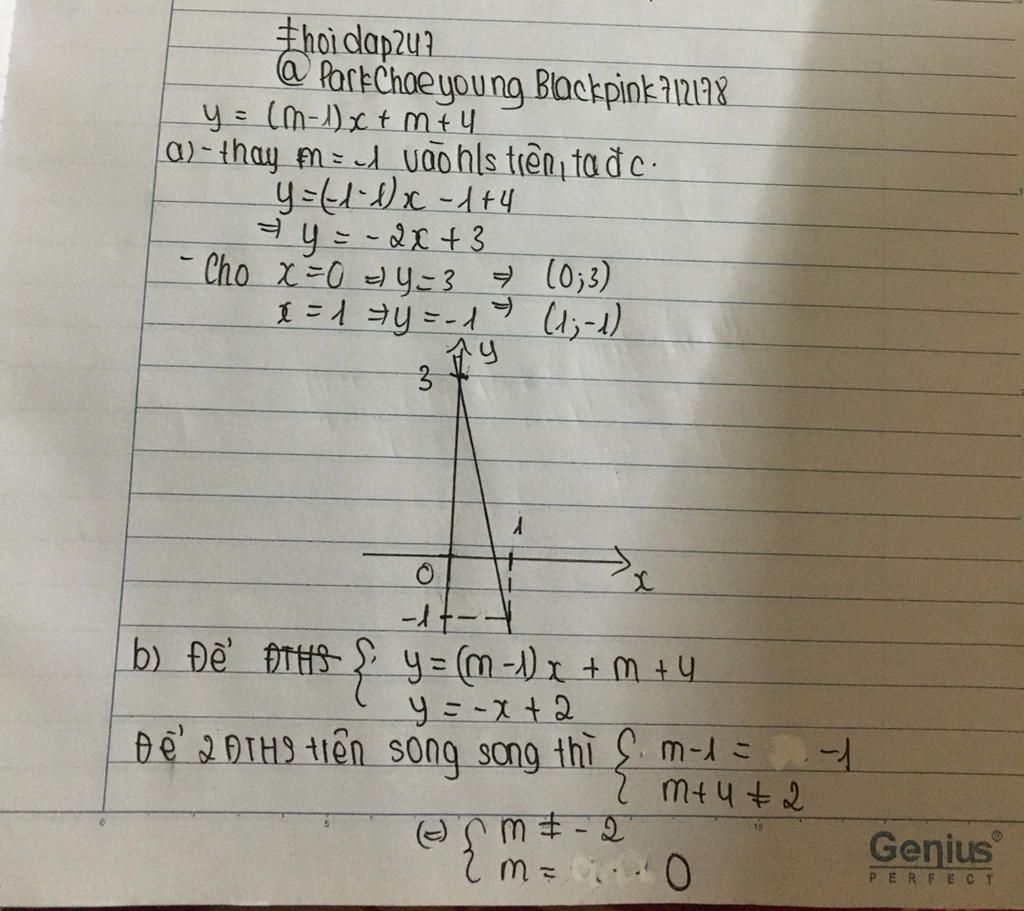 #hoidap247
@ ParkChaeyoung Blackpink712178
y = (m-1)x + m + 4
a) - thay m = -1 vào h/s trên, ta đc.
y = (-1-1)x - 1 + 4
⇒ y = -2x + 3
- Cho x = 0 ⇒ y = 3 ⇒ (0;3)
x = 1 ⇒ y = -1 ⇒ (1;-1)
y
3
1
0
x
-1
b) Để ĐTHS { y = (m-1)x + m + 4
y = -x + 2
Để 2 ĐTHS trên song song thì { m-1 = -1
m+4 ≠ 2
(=) { m ≠ -2
m = 0
0 5 10
Genius®
PERFECT